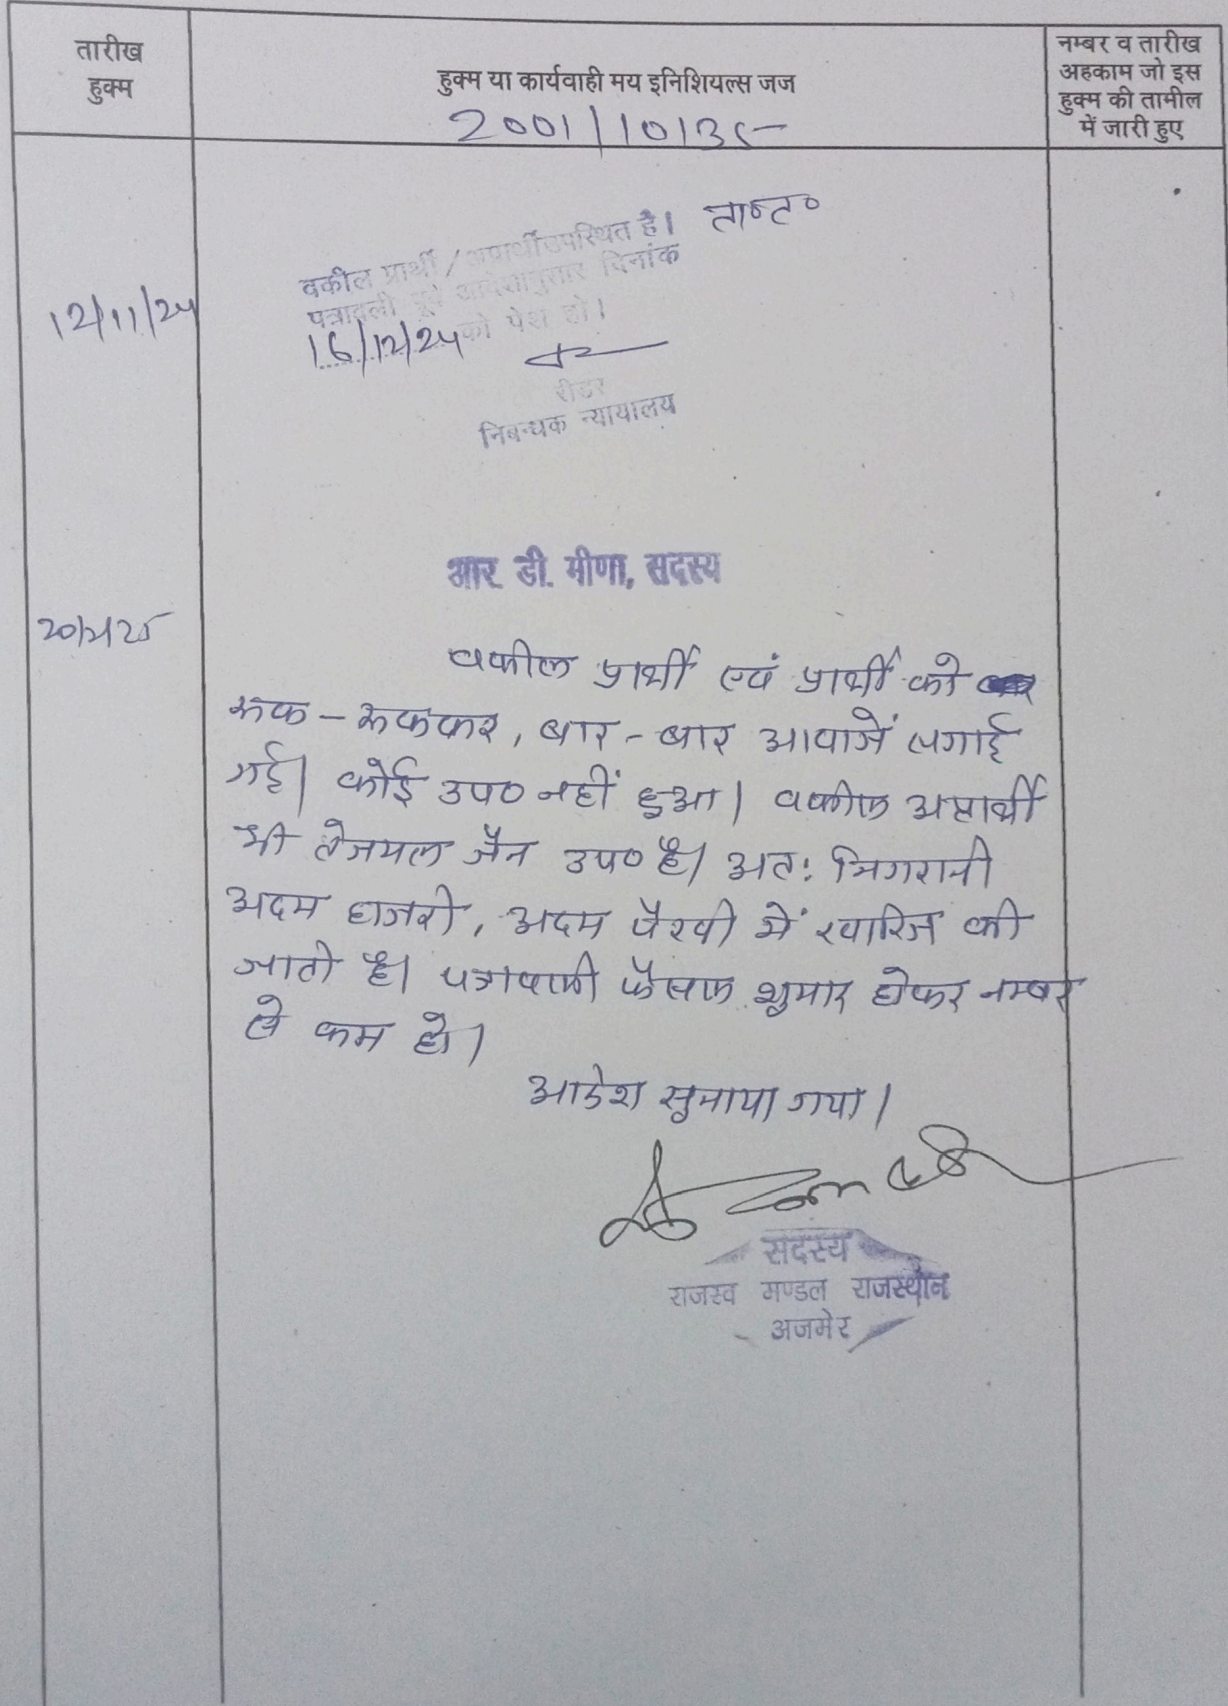 तारीख
हुक्म
हुक्म या कार्यवाही मय इनिशियल्स जज
2001/10135
नम्बर व तारीख
अहकाम जो इस
हुक्म की तामील
में जारी हुए
ता०त०
वकील प्रार्थी / अप्रार्थी उपस्थित है।
12/11/24
पत्रावली पूर्व आदेशानुसार दिनांक
16/12/24 को पेश हो।
रीडर
निबन्धक न्यायालय
आर. डी. मीणा, सदस्य
वकील प्रार्थी एवं प्रार्थी को
रूक - रूककर, बार - बार आवाजें लगाई
गई। कोई उप० नहीं हुआ। वकील अप्रार्थी
श्री तेजमल जैन उप० है। अतः निगरानी
अदम हाजरी, अदम पैरवी में खारिज की
जाती है। पत्रावली फैसल शुमार होकर नम्बर
से कम हो।
आदेश सुनाया गया।
सदस्य
राजस्व मण्डल राजस्थान
अजमेर